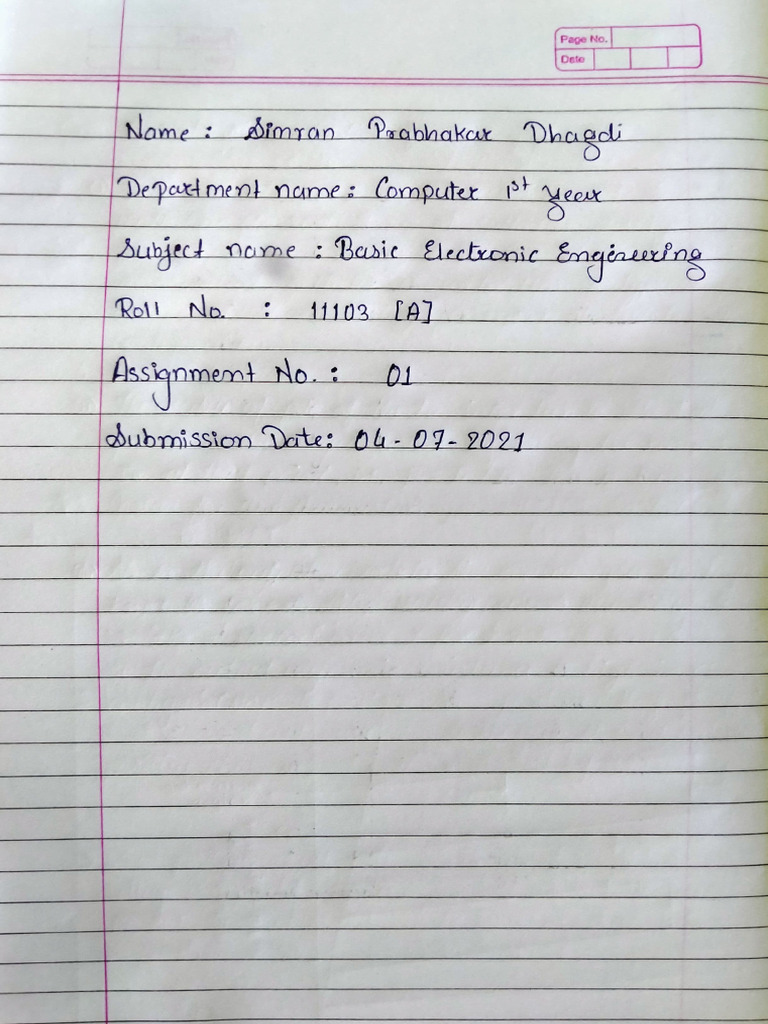 Page No.
Date
Name : Simran Prabhakar Dhagdi
Department name : Computer 1st year
Subject name : Basic Electronic Engineering
Roll No. : 11103 [A]
Assignment No. : 01
Submission Date: 04-07-2021